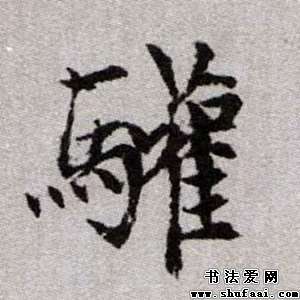 驩
书法爱网
www.shufaai.com